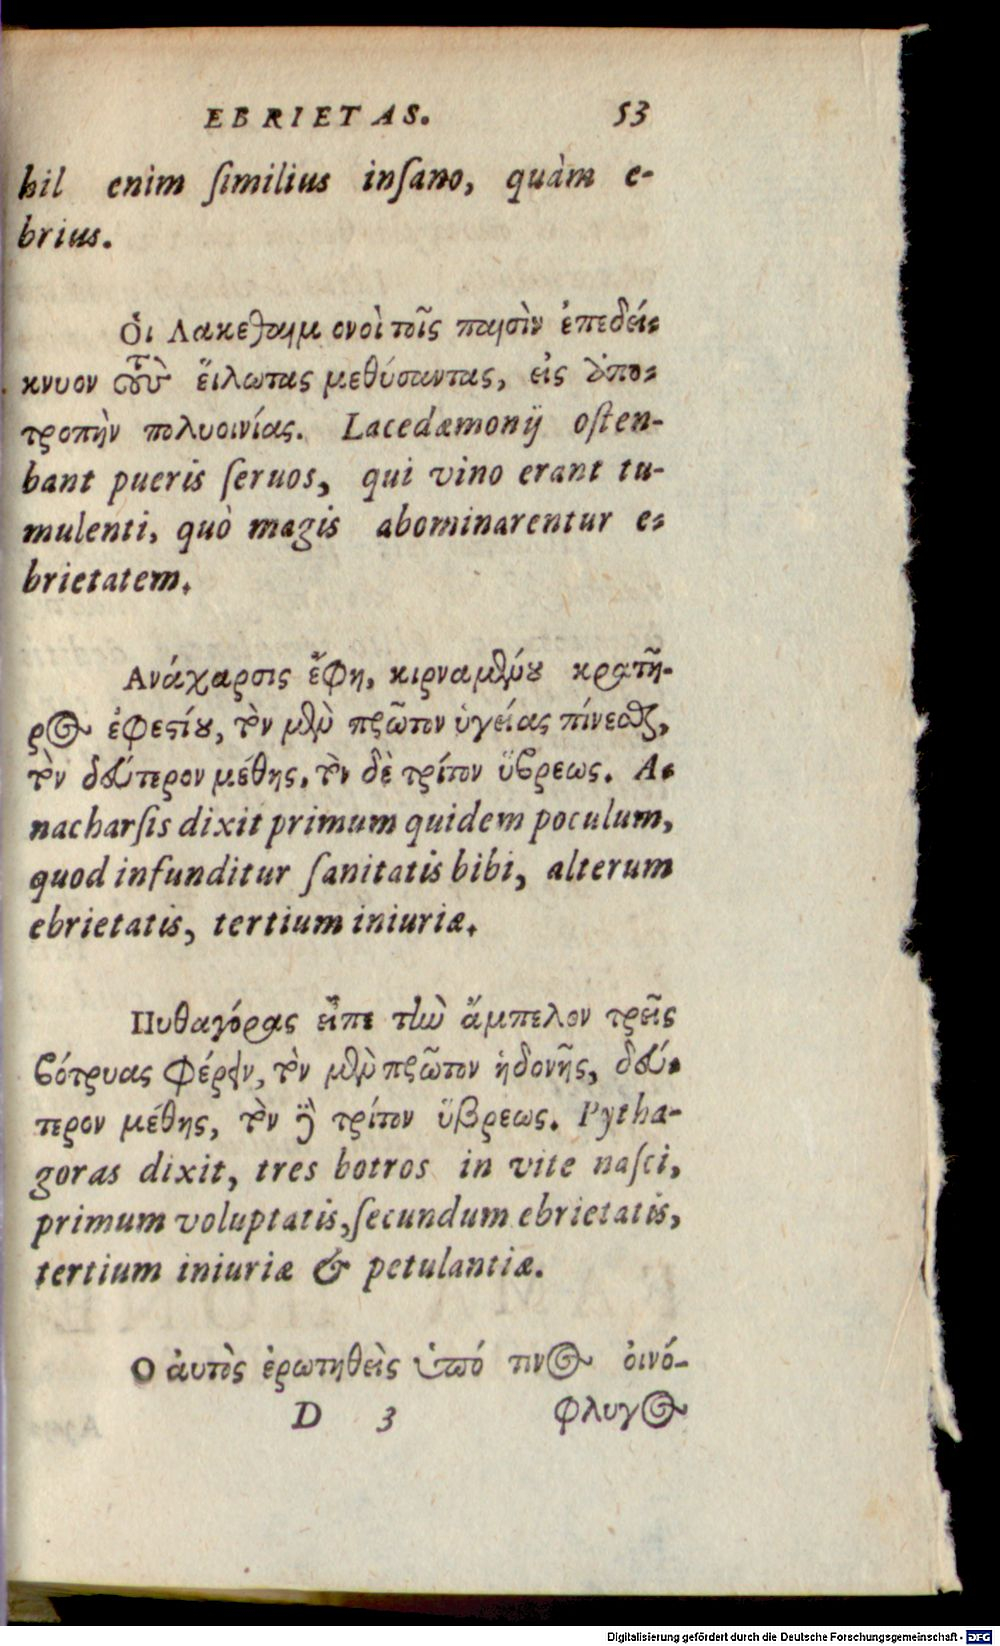 EBRIETAS. 53
hil enim ſimilius inſano, quàm e-
brius.
Οἱ Λακεδαιμ ονοὶ τοῖς παισὶν ἐπεδεί-
κνυον τοὺς ἕιλωτας μεθύσαντας, εἰς ἀπο-
τροπὴν πολυοινίας. Lacedæmonij oſten-
bant pueris ſeruos, qui vino erant tu-
mulenti, quò magis abominarentur e-
brietatem.
Ανάχαρσις ἔφη, κιρναμένου κρατῆ-
ρος ἐφεστίου, τὸν μὲν πρῶτον ὑγείας πίνεσθαι,
τὸν δεύτερον μέθης, τὸν δὲ τρίτον ὕβρεως. A-
nacharſis dixit primum quidem poculum,
quod infunditur ſanitatis bibi, alterum
ebrietatis, tertium iniuriæ.
Πυθαγόρας εἶπε τὴν ἄμπελον τρεῖς
βότρυας φέρειν, τὸν μὲν πρῶτον ἡδονῆς, δεύ-
τερον μέθης, τὸν δὲ τρίτον ὕβρεως. Pytha-
goras dixit, tres botros in vite naſci,
primum voluptatis, ſecundum ebrietatis,
tertium iniuriæ & petulantiæ.
Ο ἀυτὸς ἐρωτηθεὶς ὑπό τινος οἰνό-
D 3 φλυγος
Digitalisierung gefördert durch die Deutsche Forschungsgemeinschaft - DFG